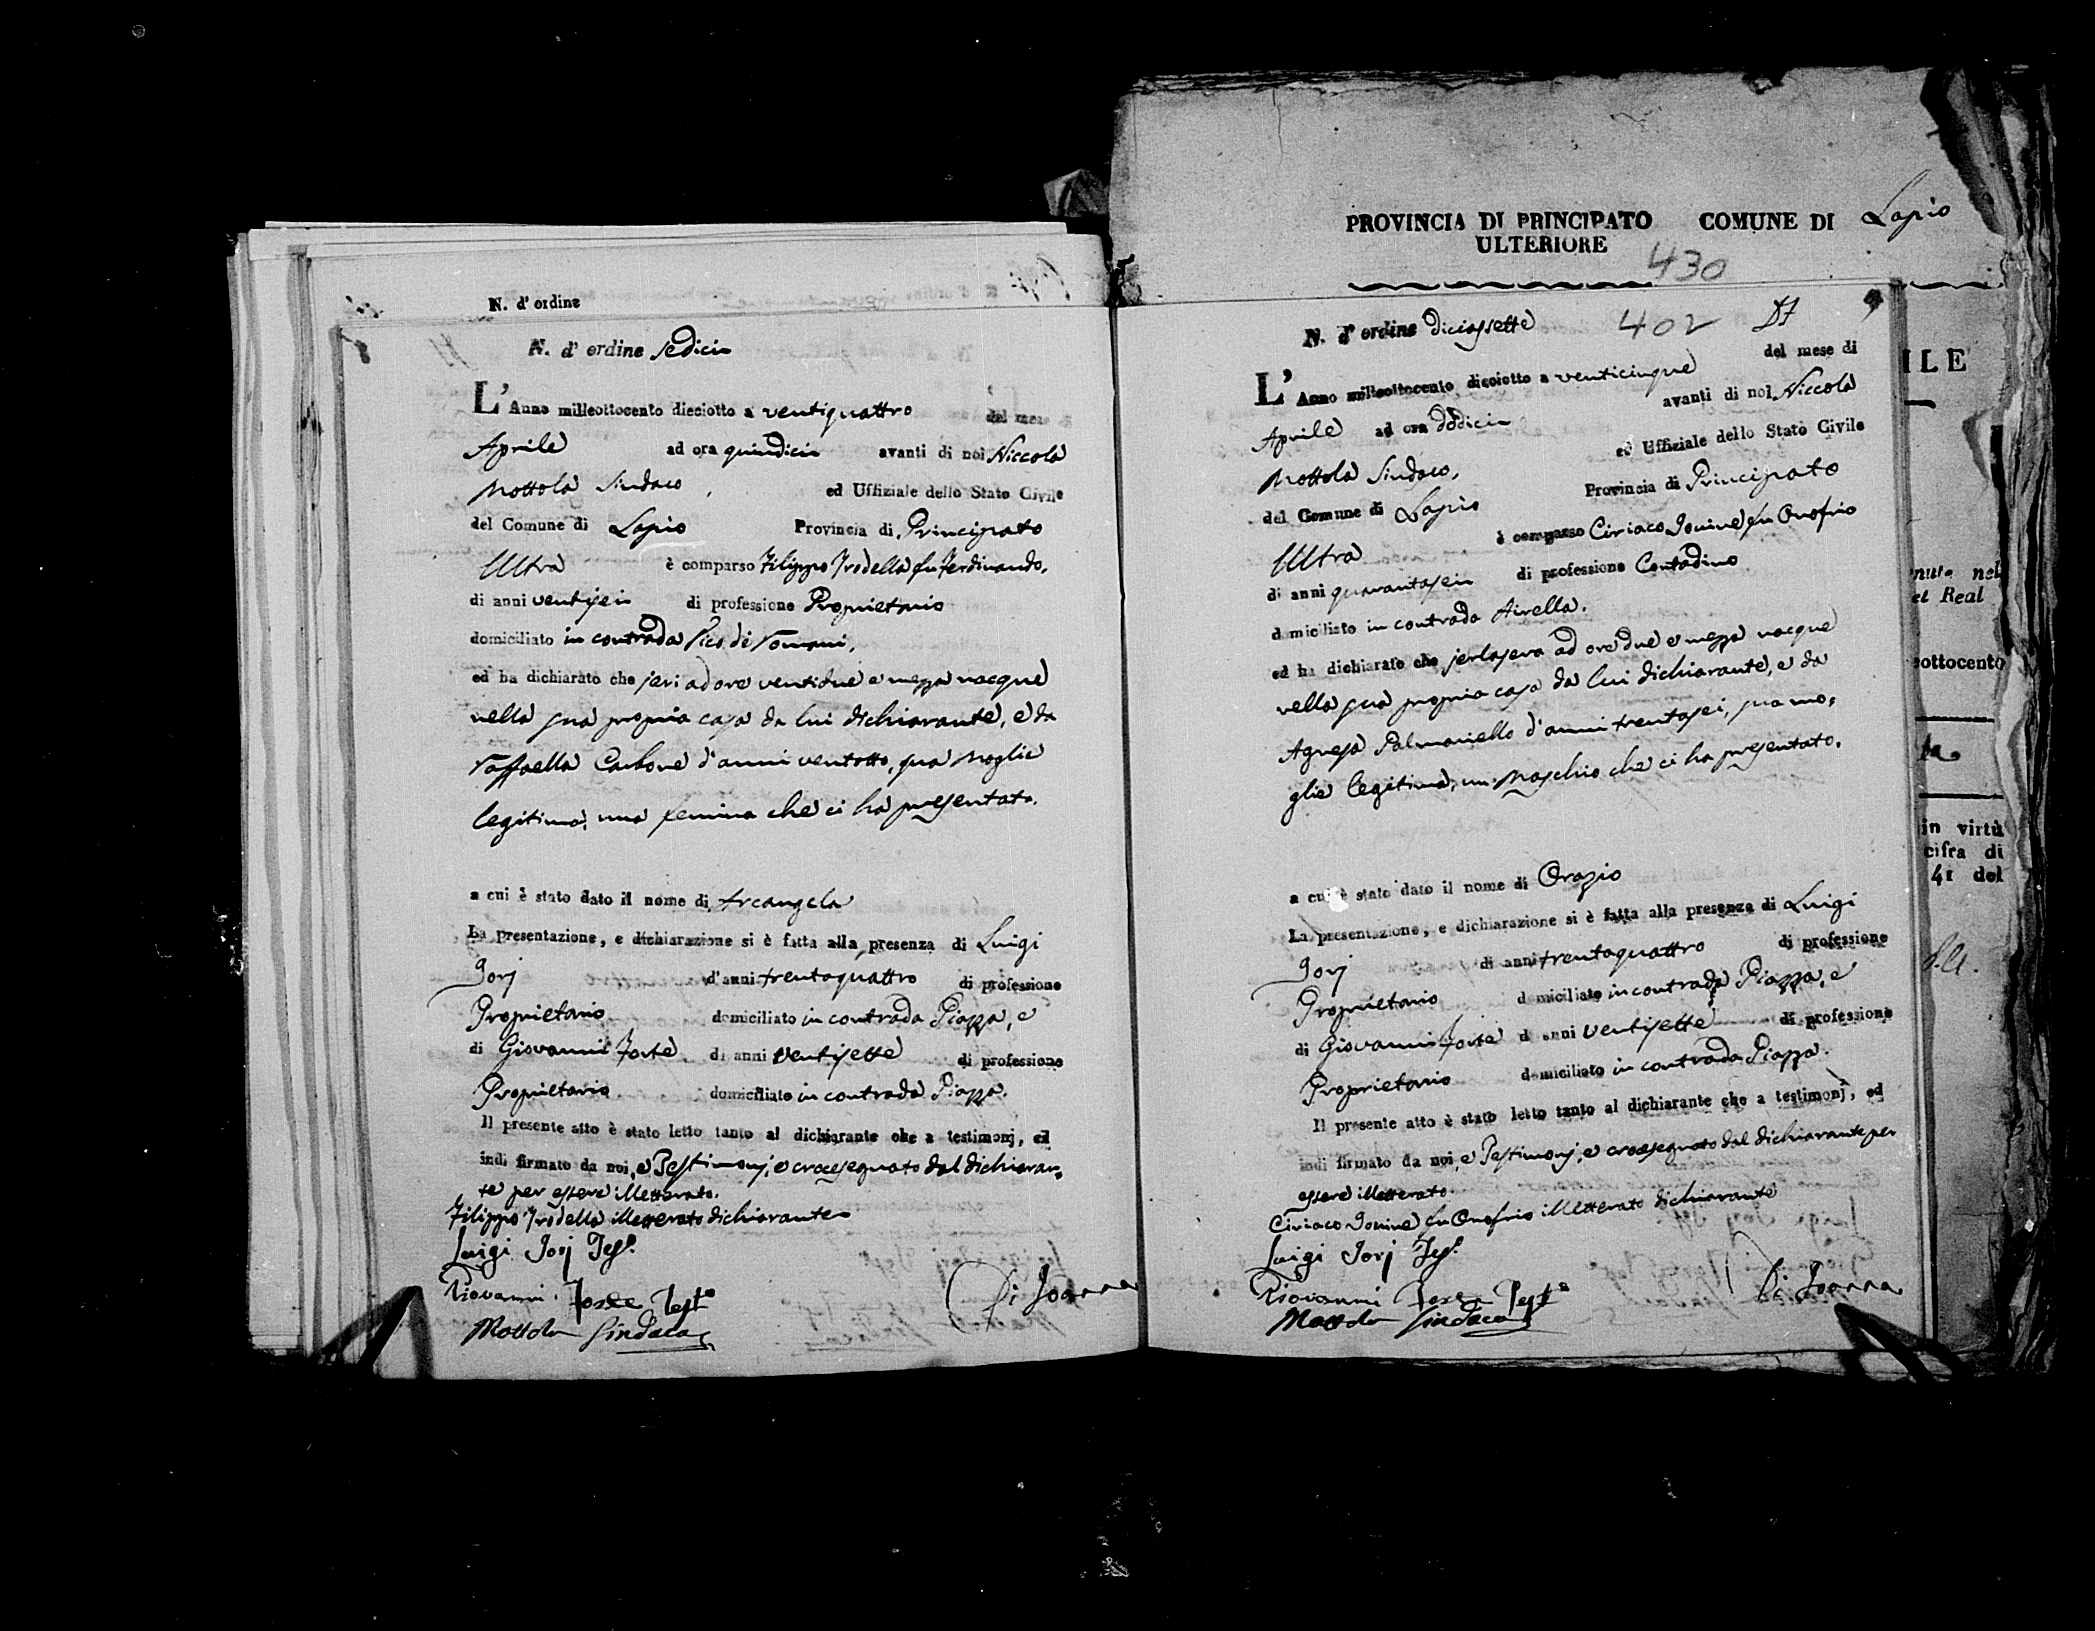 N. d' ordine
N. d' ordine sedici
L' Anno milleottocento dieciotto a ventiquattro del mese
Aprile ad ora quindici avanti di noi Niccola
Mottola Sindaco, ed Uffiziale dello Stato Civile
del Comune di Lapio Provincia di Principato
Ultra è comparso Filippo Trodella fu Ferdinando,
di anni ventisei di professione Proprietario
domiciliato in contrada Vico de
ed ha dichiarato che jeri ad ore ventidue e mezza nacque
nella sua propria casa da lui dichiarante, e da
Raffaella Carbone d'anni ventotto, sua moglie
legitima, una femina che ci ha presentata.
a cui è stato dato il nome di Arcangela
La presentazione, e dichiarazione si è fatta alla presenza di Luigi
Jorj d'anni trentaquattro di professione
Proprietario domiciliato in contrada Piazza, e
di Giovanni Forte di anni ventisette di professione
Proprietario domiciliato in contrada Piazza.
Il presente atto è stato letto tanto al dichiarante che a testimonj, ed
indi firmato da noi, e Testimonj, e crocesegnato dal dichiaran=
te per essere illetterato.
Filippo Trodella illetterato dichiarante
Luigi Jorj Tes.º
Giovanni Forte Testº
Mottola Sindaco
Di Joanna
PROVINCIA DI PRINCIPATO COMUNE DI Lapio
ULTERIORE
430
N. d' ordine diciassette 402
L' Anno milleottocento dieciotto a venticinque del mese di
Aprile ad ora dodici avanti di noi Niccola
Mottola Sindaco, ed Uffiziale dello Stato Civile
del Comune di Lapio Provincia di Principato
Ultra è comparso Ciriaco Jonine fu Onofrio
di anni quarantasei di professione Contadino
domiciliato in contrada Airella.
ed ha dichiarato che jerlasera ad ore due e mezza nacque
nella sua propria casa da lui dichiarante, e da
Agnesa Palmariello d'anni trentasei, sua mo=
glie legitima, un maschio che ci ha presentato.
a cui è stato dato il nome di Orazio
La presentazione, e dichiarazione si è fatta alla presenza di Luigi
Jorj di anni trentaquattro di professione
Proprietario domiciliato in contrada Piazza, e
di Giovanni Forte d anni ventisette di professione
Proprietario domiciliato in contrada Piazza.
Il presente atto è stato letto tanto al dichiarante che a testimonj, ed
indi firmato da noi, e Testimonj, e crocesegnato dal dichiarante per
essere illetterato.
Ciriaco Jonine fu Onofrio illetterato dichiarante
Luigi Jorj Tes.º
Giovanni Forte Testº
Mottola Sindaco
Di Joanna
ILE
nute nel
et Real
eottocento
in virtù
cifra di
41 del